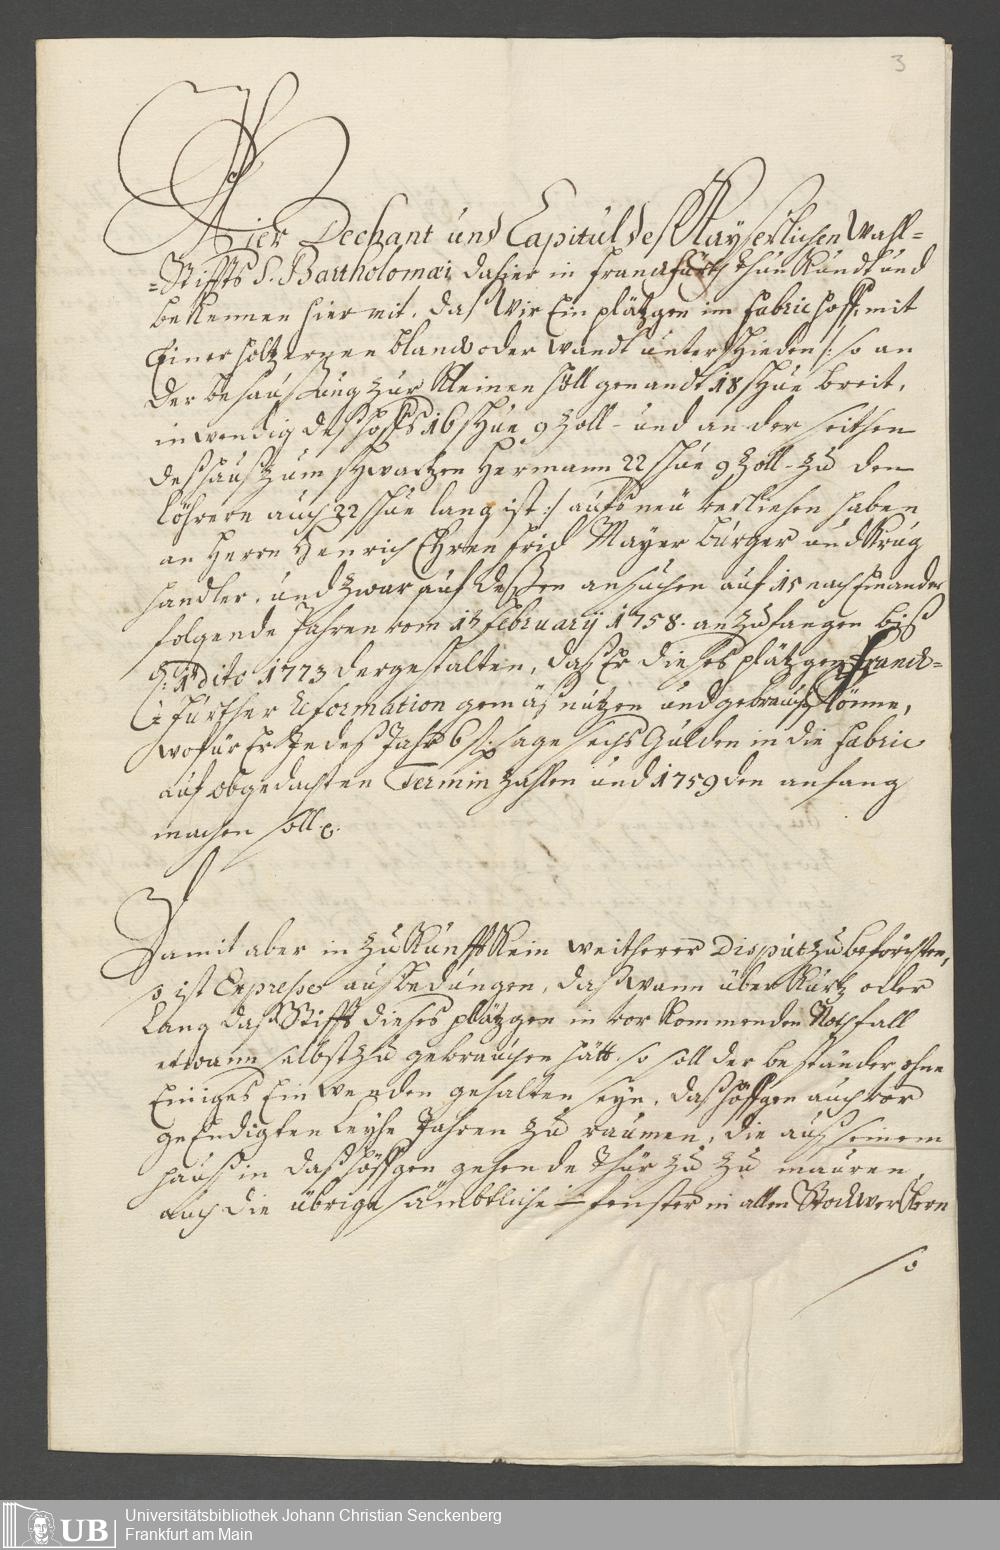 3
Wier Dechant und Capitul deß Kayserlichen Wahl=
=Stiffts S. Bartholomæi dahier in Franckfurth thun Kundt und
bekennen hiermit, daß Wir Ein plätzgen im Fabric hoff, mit
Einer höltzernen blanck oder Wandt unterschieden /: so an
der behaußung zur Kleinen Höll genandt 18 schue breit,
inwendig deß hoffs 16 schue 9 Zoll - und an der seithen
deß hauß zum schwartzen Hermann 22 schue 9 Zoll - zu den
löhrern auch 22 schue lang ist :/ aufs neu verliehen haben
an Herrn Henrich Ehrenfrid Mayer burger und Krug
händler, und zwar auf deßen ansuchen auf 15 nacheinander
folgende Jahren vom 1t February 1758. anzufangen biß
d: 1t dito 1773 dergestalten, daß Er dieses plätzgen Franck=
=further Reformation gemäß nutzen und gebrauchen könne,
wofür Er Jedeß Jahr 6 f: sage sechs Gulden in die Fabric
auf obgedachten Termin zahlen und 1759 den anfang
machen soll.
Damit aber in Zukunfft Kein weitherer Disput zu beförchten,
so ist Expresse ausbedungen, daß wann über Kurtz oder
lang daß Stifft dieses plätzgen in vorkommenden Nothfall
etwann selbst zu gebrauchen hätt, so soll der beständer ohne
Einiges Einwenden gehalten seyn, daß höffgen auch vor
geendigten Leyhe Jahren zu raumen, die auß seinem
hauß in daß höffgen gehende thür zu zu mauren,
auch die übrige sämbtliche fenster in allen Stockwerckern
so
Universitätsbibliothek Johann Christian Senckenberg
UB Frankfurt am Main